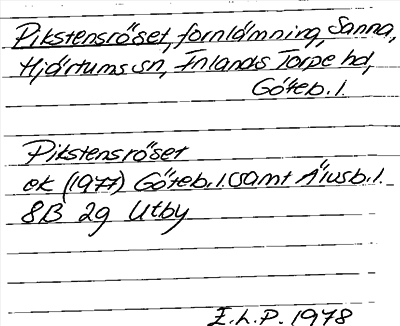 Pikstensröset, fornlämning, Sanna,
Hjärtums sn, Inlands Torpe hd,
Göteb. l.
Pikstensröset
ek (1977) Göteb. l. samt Älvsb. l.
8B 2g Utby
E.L.P. 1978